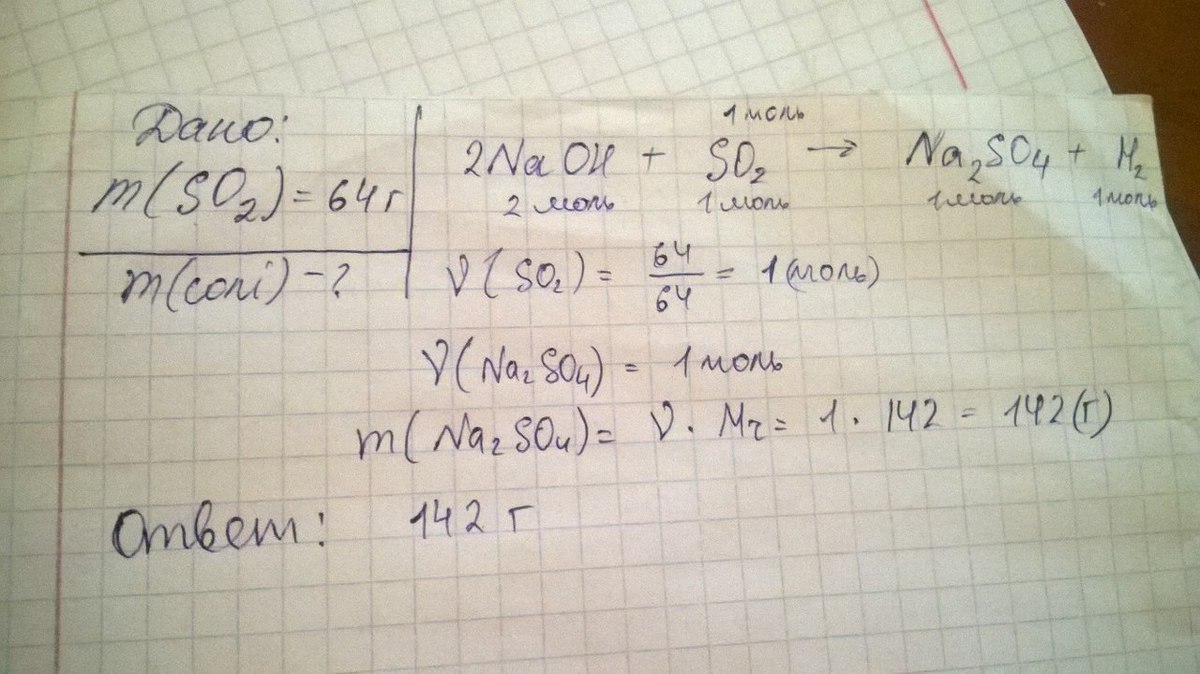 Дано:
m(SO₂) = 64 г
m(солі) - ?
1 моль
2NaOH + SO₂ → Na₂SO₄ + H₂
2 моль 1 моль 1 моль 1 моль
ν(SO₂) = 64/64 = 1 (моль)
ν(Na₂SO₄) = 1 моль
m(Na₂SO₄) = ν · Mr = 1 · 142 = 142 (г)
Ответ: 142 г